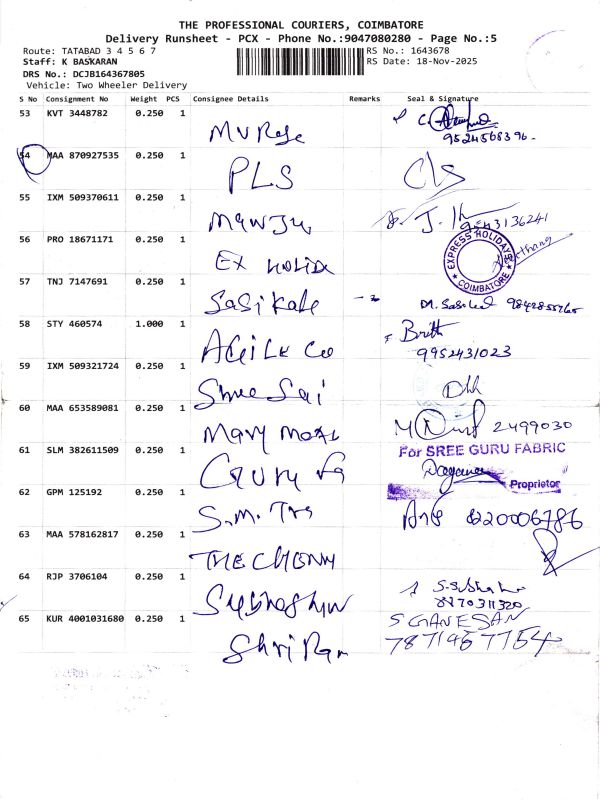 THE PROFESSIONAL COURIERS, COIMBATORE
Delivery Runsheet - PCX - Phone No.:9047080280 - Page No.:5
Route: TATABAD 3 4 5 6 7 RS No.: 1643678
Staff: K BASKARAN RS Date: 18-Nov-2025
DRS No.: DCJB164367805
Vehicle: Two Wheeler Delivery
S No Consignment No Weight PCS Consignee Details Remarks Seal & Signature
53 KVT 3448782 0.250 1
MV Rose
9524568396
54 MAA 870927535 0.250 1
PLS
55 IXM 509370611 0.250 1
Manju
9543136241
56 PRO 18671171 0.250 1
EX HOLIDA
EXPRESS HOLIDAYS
COIMBATORE
57 TNJ 7147691 0.250 1
Sasikale
58 STY 460574 1.000 1
AGILE CO
9952431023
59 IXM 509321724 0.250 1
Shree Sai
60 MAA 653589081 0.250 1
Mary
2499030
61 SLM 382611509 0.250 1
Guru Fa
For SREE GURU FABRIC
Proprietor
62 GPM 125192 0.250 1
S.M. Trs
8220006786
63 MAA 578162817 0.250 1
THE CHENN
64 RJP 3706104 0.250 1
65 KUR 4001031680 0.250 1
Shri Ram
S GANESAN
7871967754